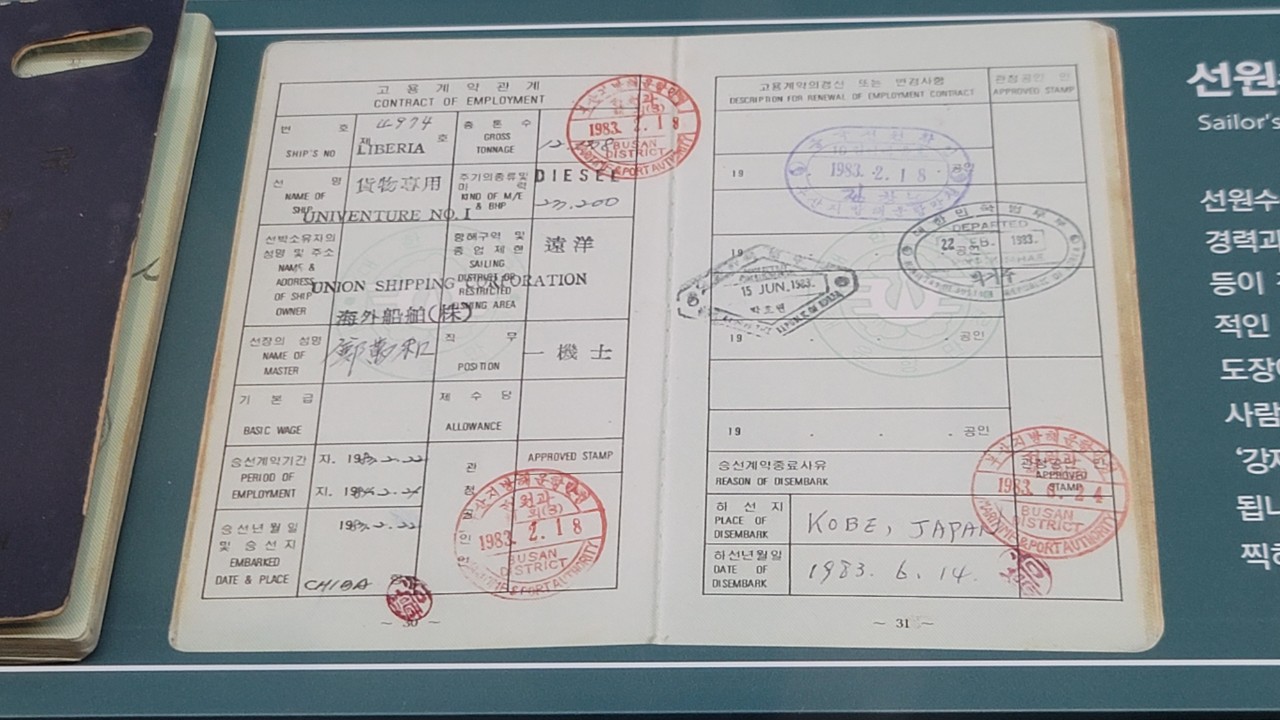 고용계약관계
CONTRACT OF EMPLOYMENT
번 호
SHIP'S NO
제 호
LIBERIA
총 톤 수
GROSS
TONNAGE
선 명
NAME OF
SHIP
貨物専用
UNIVENTURE NO. I
주기의종류및
마 력
KIND OF M/E
& BHP
DIESEL
23,200
선박소유자의
성명 및 주소
NAME &
ADDRESS
OF SHIP
OWNER
UNION SHIPPING CORPORATION
海外船舶(株)
항해구역 및
종업제한
SAILING
DISTRICT OR
RESTRICTED
AREA
遠洋
선장의 성명
NAME OF
MASTER
직 무
POSITION
一機士
기 본 급
BASIC WAGE
제 수 당
ALLOWANCE
승선계약기간
PERIOD OF
EMPLOYMENT
지.
지.
관청공인인
APPROVED STAMP
승선년월일
및 승선지
EMBARKED
DATE & PLACE
CHIBA
1983. 2. 18
BUSAN
DISTRICT
MARITIME & PORT AUTHORITY
1983. 2. 18
BUSAN
DISTRICT
MARITIME & PORT AUTHORITY
~ 30 ~
고용계약의갱신 또는 변경사항
DESCRIPTION FOR RENEWAL OF EMPLOYMENT CONTRACT
관청공인 인
APPROVED STAMP
19 . . . 공인
1983. 2. 18
19 . . . 공인
DEPARTED
22 FEB. 1983.
15 JUN. 1983.
19 . . . 공인
19 . . . 공인
승선계약종료사유
REASON OF DISEMBARK
관청공인 인
APPROVED
STAMP
1983. 6. 24
BUSAN
DISTRICT
MARITIME & PORT AUTHORITY
하 선 지
PLACE OF
DISEMBARK
KOBE, JAPAN
하선년월일
DATE OF
DISEMBARK
1983. 6. 14.
~ 31 ~
선원
Sailor's
선원수
경력과
등이
적인
도장이
사람
됩니
찍히